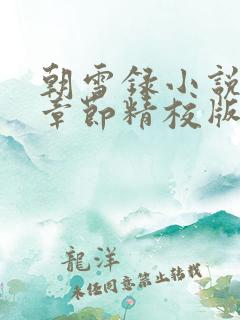 朝雪録小說
章節精校版
龍洋
未经同意禁止转载